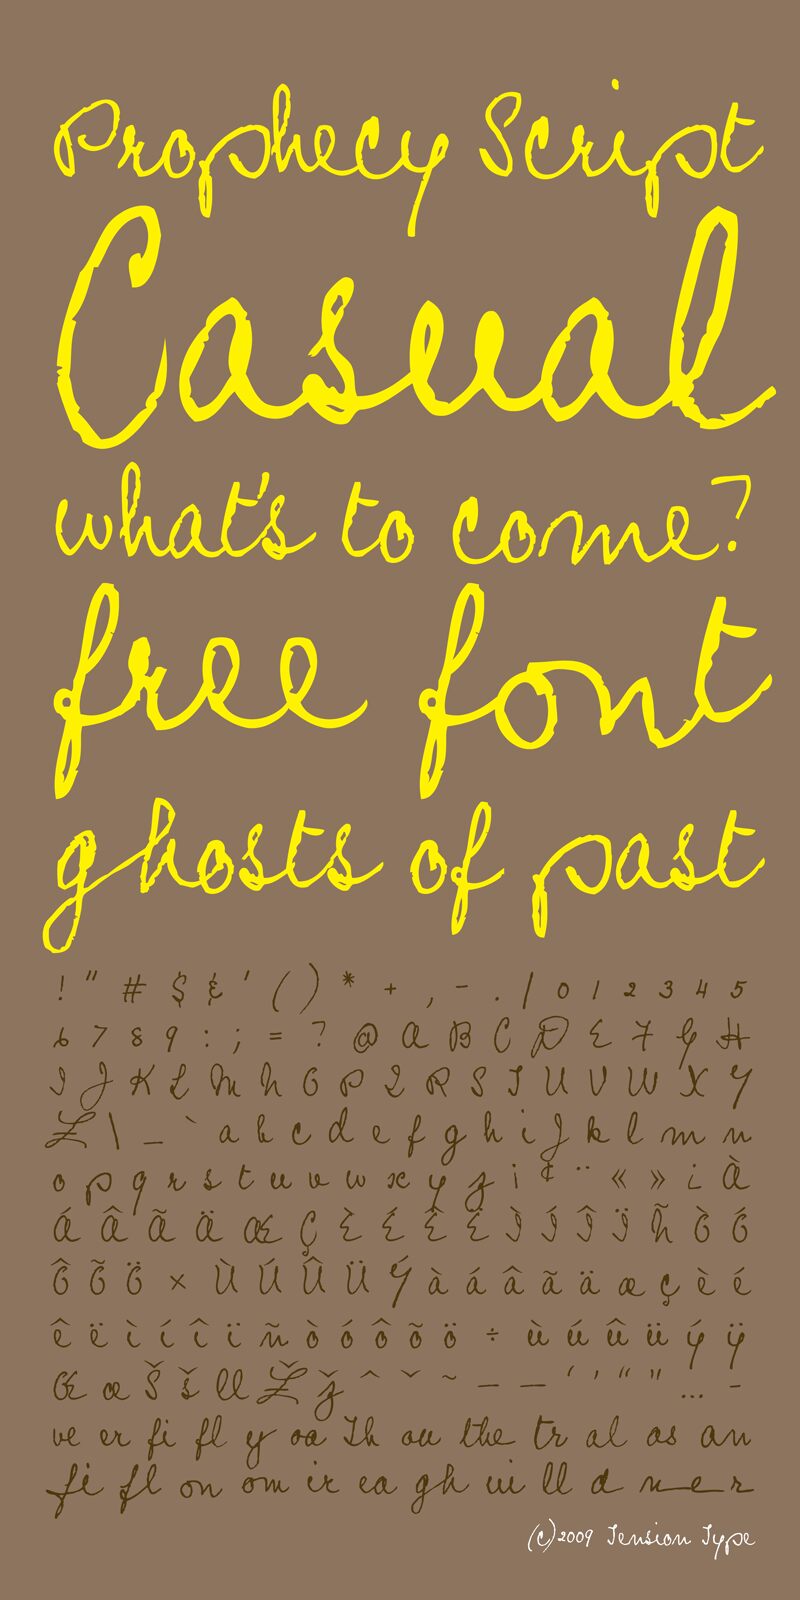 Prophecy Script
Casual
what's to come?
free font
ghosts of past
! " # $ & ' ( ) * + , - . / 0 1 2 3 4 5
6 7 8 9 : ; = ? @ A B C D E F G H
I J K L M N O P Q R S T U V W X Y
Z \ _ ` a b c d e f g h i j k l m n
o p q r s t u v w x y z ¡ ¢ ¨ « » ¿ À
Á Â Ã Ä Æ Ç È É Ê Ë Ì Í Î Ï Ñ Ò Ó
Ô Õ Ö × Ù Ú Û Ü Ý à á â ã ä æ ç è é
ê ë ì í î ï ñ ò ó ô õ ö ÷ ù ú û ü ý ÿ
Œ œ Š š ll Ž ž ˆ ˇ ˜ – — ‘ ’ “ ” … -
ve er fi fl y oa Th ou the tr al as an
fi fl on om ir ea gh ui ll d n e r
(c)2009 Tension Type